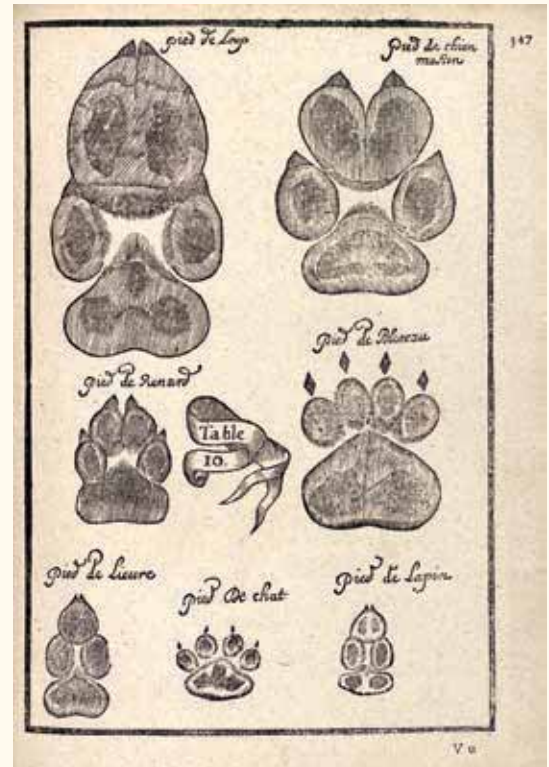 347
pied de Loup
pied de chien
mastin
pied de Renard
pied de Blereau
Table
10.
pied de Lieure
pied De chat
pied de Lapin
V u